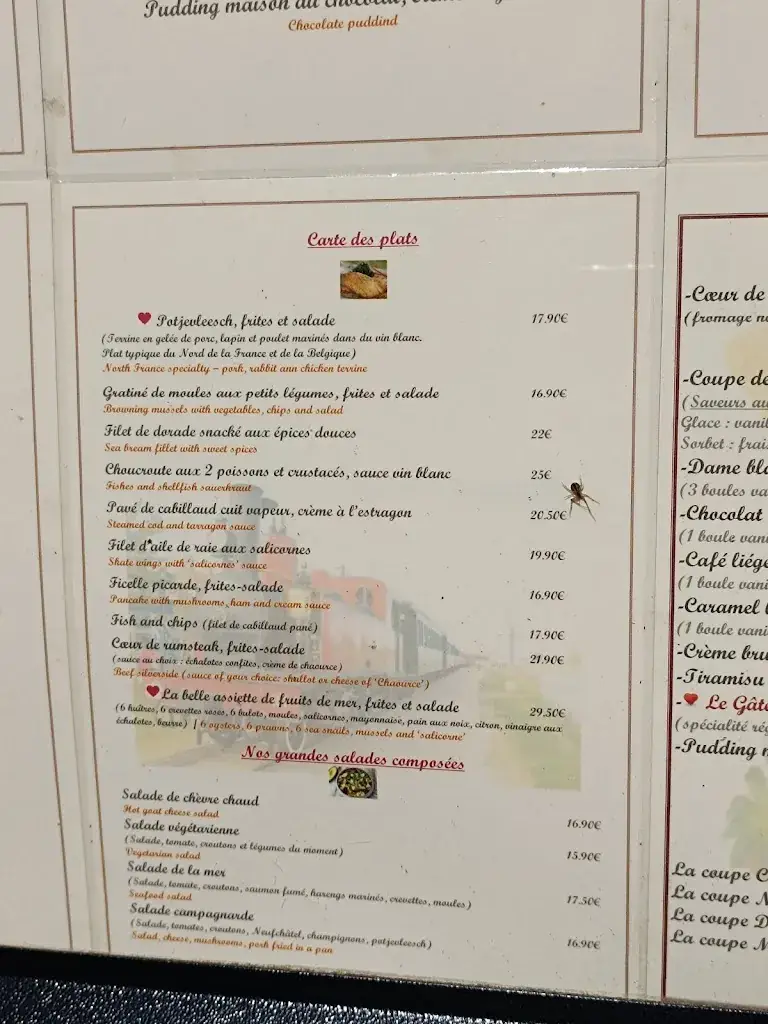 Pudding maison au chocolat,
Chocolate puddind
Carte des plats
Potjevleesch, frites et salade 17.90€
(Terrine en gelée de porc, lapin et poulet marinés dans du vin blanc.
Plat typique du Nord de la France et de la Belgique)
North France specialty – pork, rabbit ann chicken terrine
Gratiné de moules aux petits légumes, frites et salade 16.90€
Browning mussels with vegetables, chips and salad
Filet de dorade snacké aux épices douces 22€
Sea bream fillet with sweet spices
Choucroute aux 2 poissons et crustacés, sauce vin blanc 25€
Fishes and shellfish sauerkraut
Pavé de cabillaud cuit vapeur, crème à l'estragon 20.50€
Steamed cod and tarragon sauce
Filet d'aile de raie aux salicornes 19.90€
Skate wings with 'salicornes' sauce
Ficelle picarde, frites-salade 16.90€
Pancake with mushrooms, ham and cream sauce
Fish and chips (filet de cabillaud pané) 17.90€
Cœur de rumsteak, frites-salade 21.90€
(sauce au choix : échalotes confites, crème de chaource)
Beef silverside (sauce of your choice: shallot or cheese of 'Chaource')
La belle assiette de fruits de mer, frites et salade 29.50€
(6 huîtres, 6 crevettes roses, 6 bulots, moules, salicornes, mayonnaise, pain aux noix, citron, vinaigre aux
échalotes, beurre) | 6 oysters, 6 prawns, 6 sea snails, mussels and 'salicorne'
Nos grandes salades composées
Salade de chèvre chaud 16.90€
Hot goat cheese salad
Salade végétarienne 15.90€
(Salade, tomate, croutons et légumes du moment)
Vegetarian salad
Salade de la mer 17.50€
(Salade, tomate, croutons, saumon fumé, harengs marinés, crevettes, moules)
Seafood salad
Salade campagnarde 16.90€
(Salade, tomates, croutons, Neufchâtel, champignons, potjevleesch)
Salad, cheese, mushrooms, pork fried in a pan
-Cœur de
(fromage
-Coupe de
(Saveurs
Glace :
Sorbet :
-Dame
(3 boules
-Chocolat
(1 boule
-Café
(1 boule
-Caramel
(1 boule
-Crème
-Tiramisu
- Le
(spécialité
-Pudding
La coupe
La coupe
La coupe
La coupe